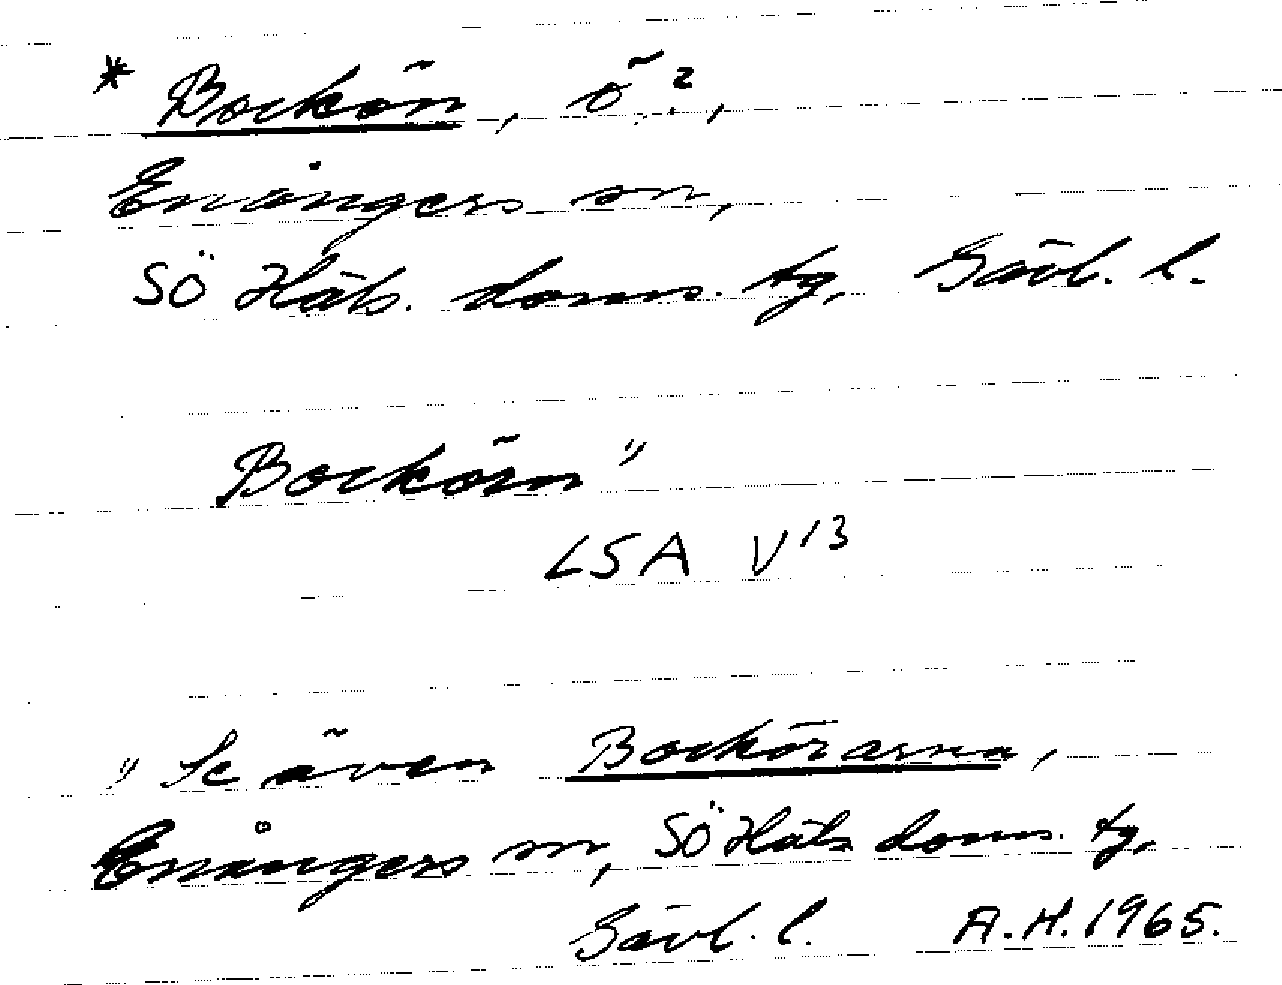 * Bockön, ö?,
Enångers sn,
SÖ Häls. doms. tg, Gävl. l.
Bockörn "
LSA V13
" Se även Bockörarna,
Enångers sn, SÖ Häls doms. tg,
Gävl. l. A.H. 1965.